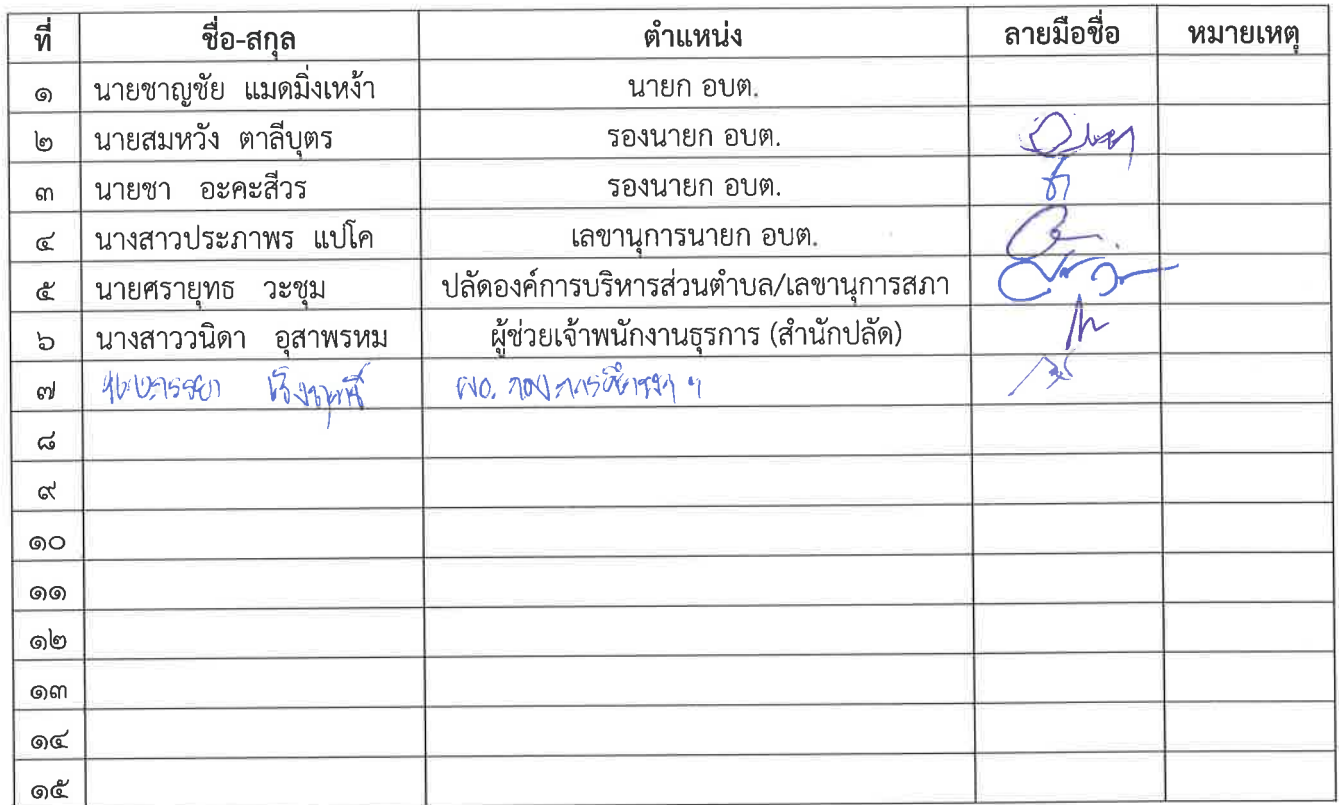 ที่ ชื่อ-สกุล ตำแหน่ง ลายมือชื่อ หมายเหตุ
๑ นายชาญชัย แมดมิ่งเหง้า นายก อบต.
๒ นายสมหวัง ตาลีบุตร รองนายก อบต.
๓ นายชา อะคะสีวร รองนายก อบต. ชา
๔ นางสาวประภาพร แปโค เลขานุการนายก อบต.
๕ นายศรายุทธ วะชุม ปลัดองค์การบริหารส่วนตำบล/เลขานุการสภา
๖ นางสาววนิดา อุสาพรหม ผู้ช่วยเจ้าพนักงานธุรการ (สำนักปลัด)
๗ ผอ. กองการศึกษา ฯ
๘
๙
๑๐
๑๑
๑๒
๑๓
๑๔
๑๕